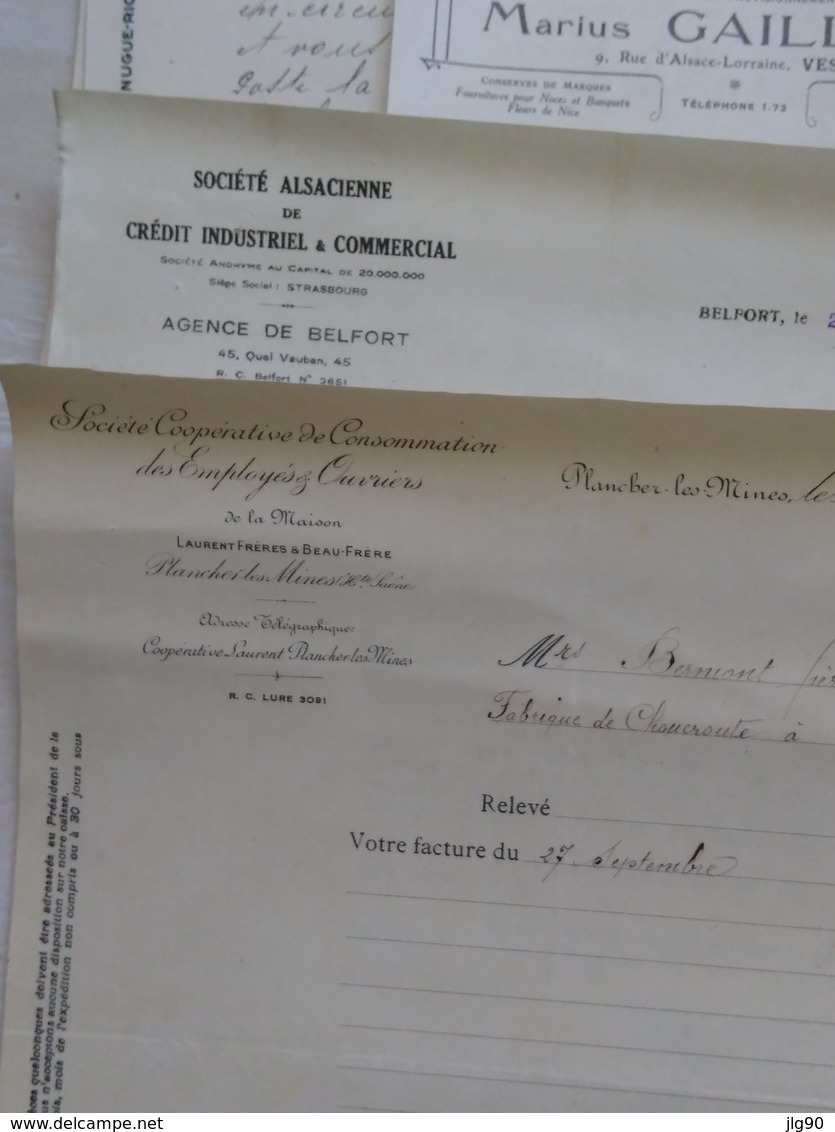 NUGUE-RIC
en circu
et vous
Poste la
Marius GAILL
9, Rue d'Alsace-Lorraine, VES
CONSERVES DE MARQUES
Fournitures pour Noces et Banquets
Fleurs de Nice
TÉLÉPHONE 1.72
SOCIÉTÉ ALSACIENNE
DE
CRÉDIT INDUSTRIEL & COMMERCIAL
SOCIÉTÉ ANONYME AU CAPITAL DE 20.000.000
Siège Social : STRASBOURG
AGENCE DE BELFORT
45, Quai Vauban, 45
R. C. Belfort N° 2651
BELFORT, le 2
Société Coopérative de Consommation
des Employés & Ouvriers
de la Maison
LAURENT FRÈRES & BEAU-FRÈRE
Plancher les Mines (Hte Saône)
Adresse Télégraphique:
Coopérative Laurent Plancher les Mines
R. C. LURE 3091
Plancher-les-Mines, le
Mrs Bermont
Fabrique de Choucroute à
Relevé
Votre facture du 27 Septembre
quelconques doivent être adressées au Président de la
n'acceptons aucune disposition sur notre caisse.
mois de l'expédition non compris ou à 30 jours sous
www.delcampe.net
jlg90